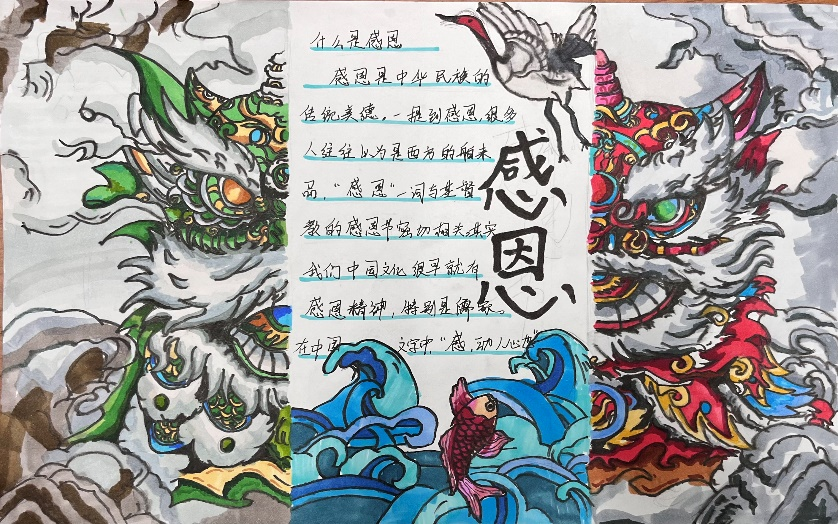 什么是感恩
感恩是中华民族的
传统美德。一提到感恩很多
人往往以为是西方的舶来
品,“感恩”一词与基督
教的感恩节密切相关其实
我们中国文化很早就有
感恩精神,特别是儒家。
在中国 文字中“感,动人心也”
感恩